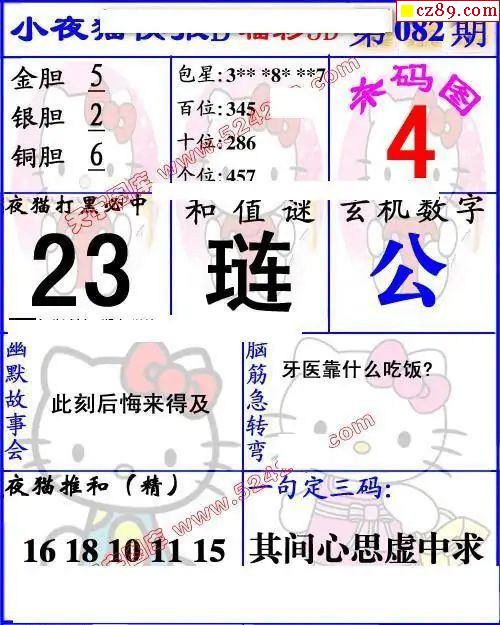 cz89.com
小夜猫
第082期
金胆 5
银胆 2
铜胆 6
包星:3** *8* **7
百位:345
十位:286
个位:457
来码图
4
夜猫打黑必中
23
和值谜
琏
玄机数字
公
幽默故事会
此刻后悔来得及
脑筋急转弯
牙医靠什么吃饭?
夜猫推和（精）
16 18 10 11 15
一句定三码:
其间心思虚中求